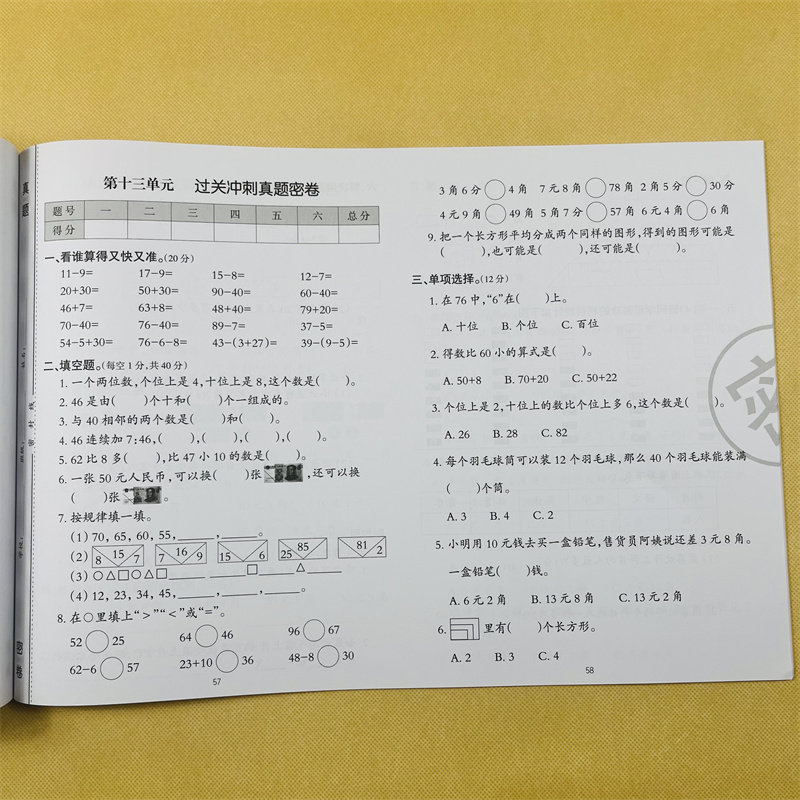 真题
密卷
第十三单元 过关冲刺真题密卷
题号 一 二 三 四 五 六 总分
得分
一、看谁算得又快又准。(20分)
11-9= 17-9= 15-8= 12-7=
20+30= 50+30= 90-40= 60-40=
46+7= 63+8= 48+40= 79+20=
70-40= 76-40= 89-7= 37-5=
54-5+30= 76-6-8= 43-(3+27)= 39-(9-5)=
二、填空题。(每空1分,共40分)
1. 一个两位数,个位上是4,十位上是8,这个数是( )。
2. 46是由( )个十和( )个一组成的。
3. 与40相邻的两个数是( )和( )。
4. 46连续加7:46,( ),( ),( ),( )。
5. 62比8多( ),比47小10的数是( )。
6. 一张50元人民币,可以换( )张 ,还可以换
( )张 。
7. 按规律填一填。
(1) 70, 65, 60, 55, ____, ____。
(2) 8 15 7 7 16 9 15 6 25 85 81 2
(3) ○△□○△□____ ____□____△____
(4) 12, 23, 34, 45, ____, ____, ____。
8. 在○里填上“>”“<”或“=”。
52○25 64○46 96○67
62-6○57 23+10○36 48-8○30
57
3角6分○4角 7元8角○78角 2角5分○30分
4元9角○49角 5角7分○57角 6元4角○6角
9. 把一个长方形平均分成两个同样的图形,得到的图形可能是
( ),也可能是( ),还可能是( )。
三、单项选择。(12分)
1. 在76中,“6”在( )上。
A. 十位 B. 个位 C. 百位
2. 得数比60小的算式是( )。
A. 50+8 B. 70+20 C. 50+22
3. 个位上是2,十位上的数比个位上多6,这个数是( )。
A. 26 B. 28 C. 82
4. 每个羽毛球筒可以装12个羽毛球,那么40个羽毛球能装满
( )个筒。
A. 3 B. 4 C. 2
5. 小明用10元钱去买一盒铅笔,售货员阿姨说还差3元8角。
一盒铅笔( )钱。
A. 6元2角 B. 13元8角 C. 13元2角
6. 里有( )个长方形。
A. 2 B. 3 C. 4
58
密